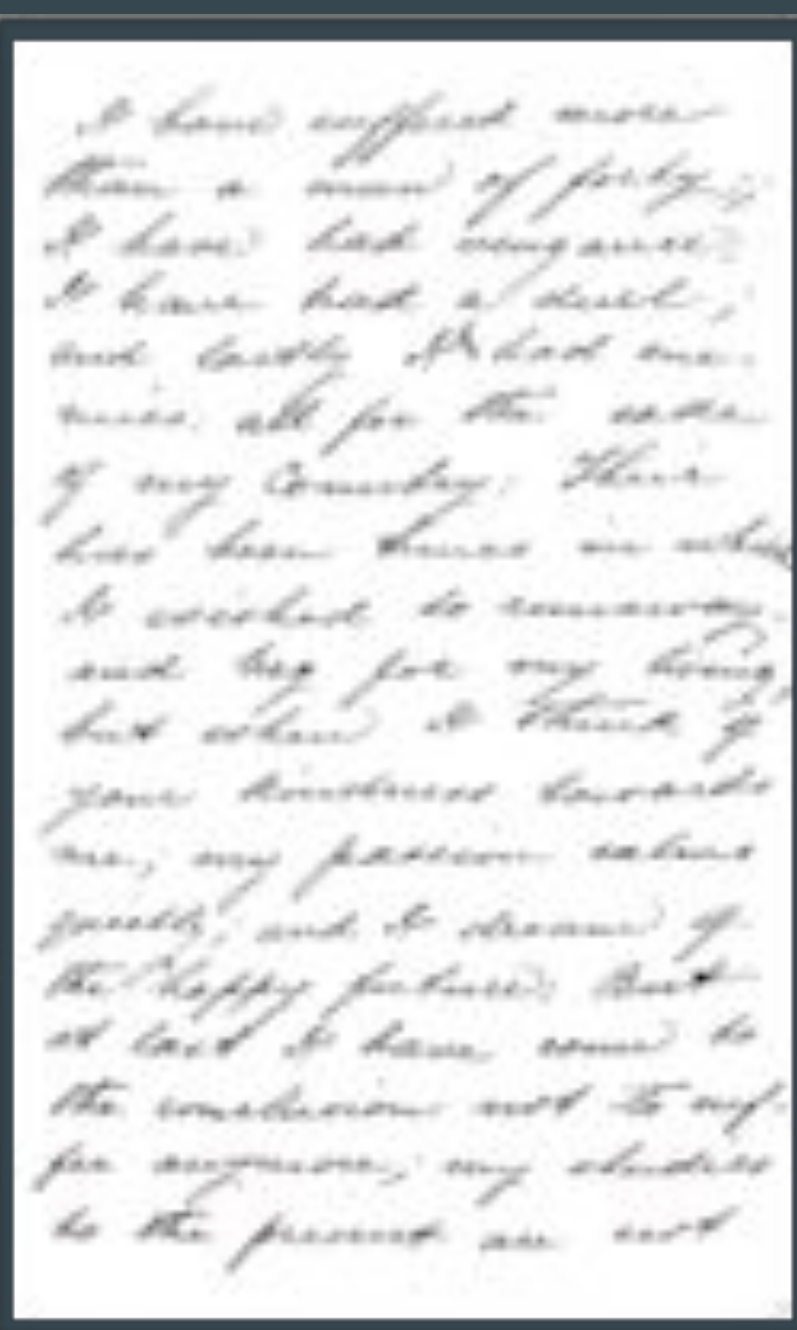 I have suffered more
than a man of forty;
I have had vengance;
I have had a duel;
and lastly I had ene-
mies. all for the sake
of my Country. Their
has been times in which
I wished to runaway
and beg for my living,
but when I think of
your kindness towards
me, my passion calms
quietly, and I dream of
the happy future. But
at last I have come to
the conclusion not to suf-
fer anymore; my studies
to the present are not